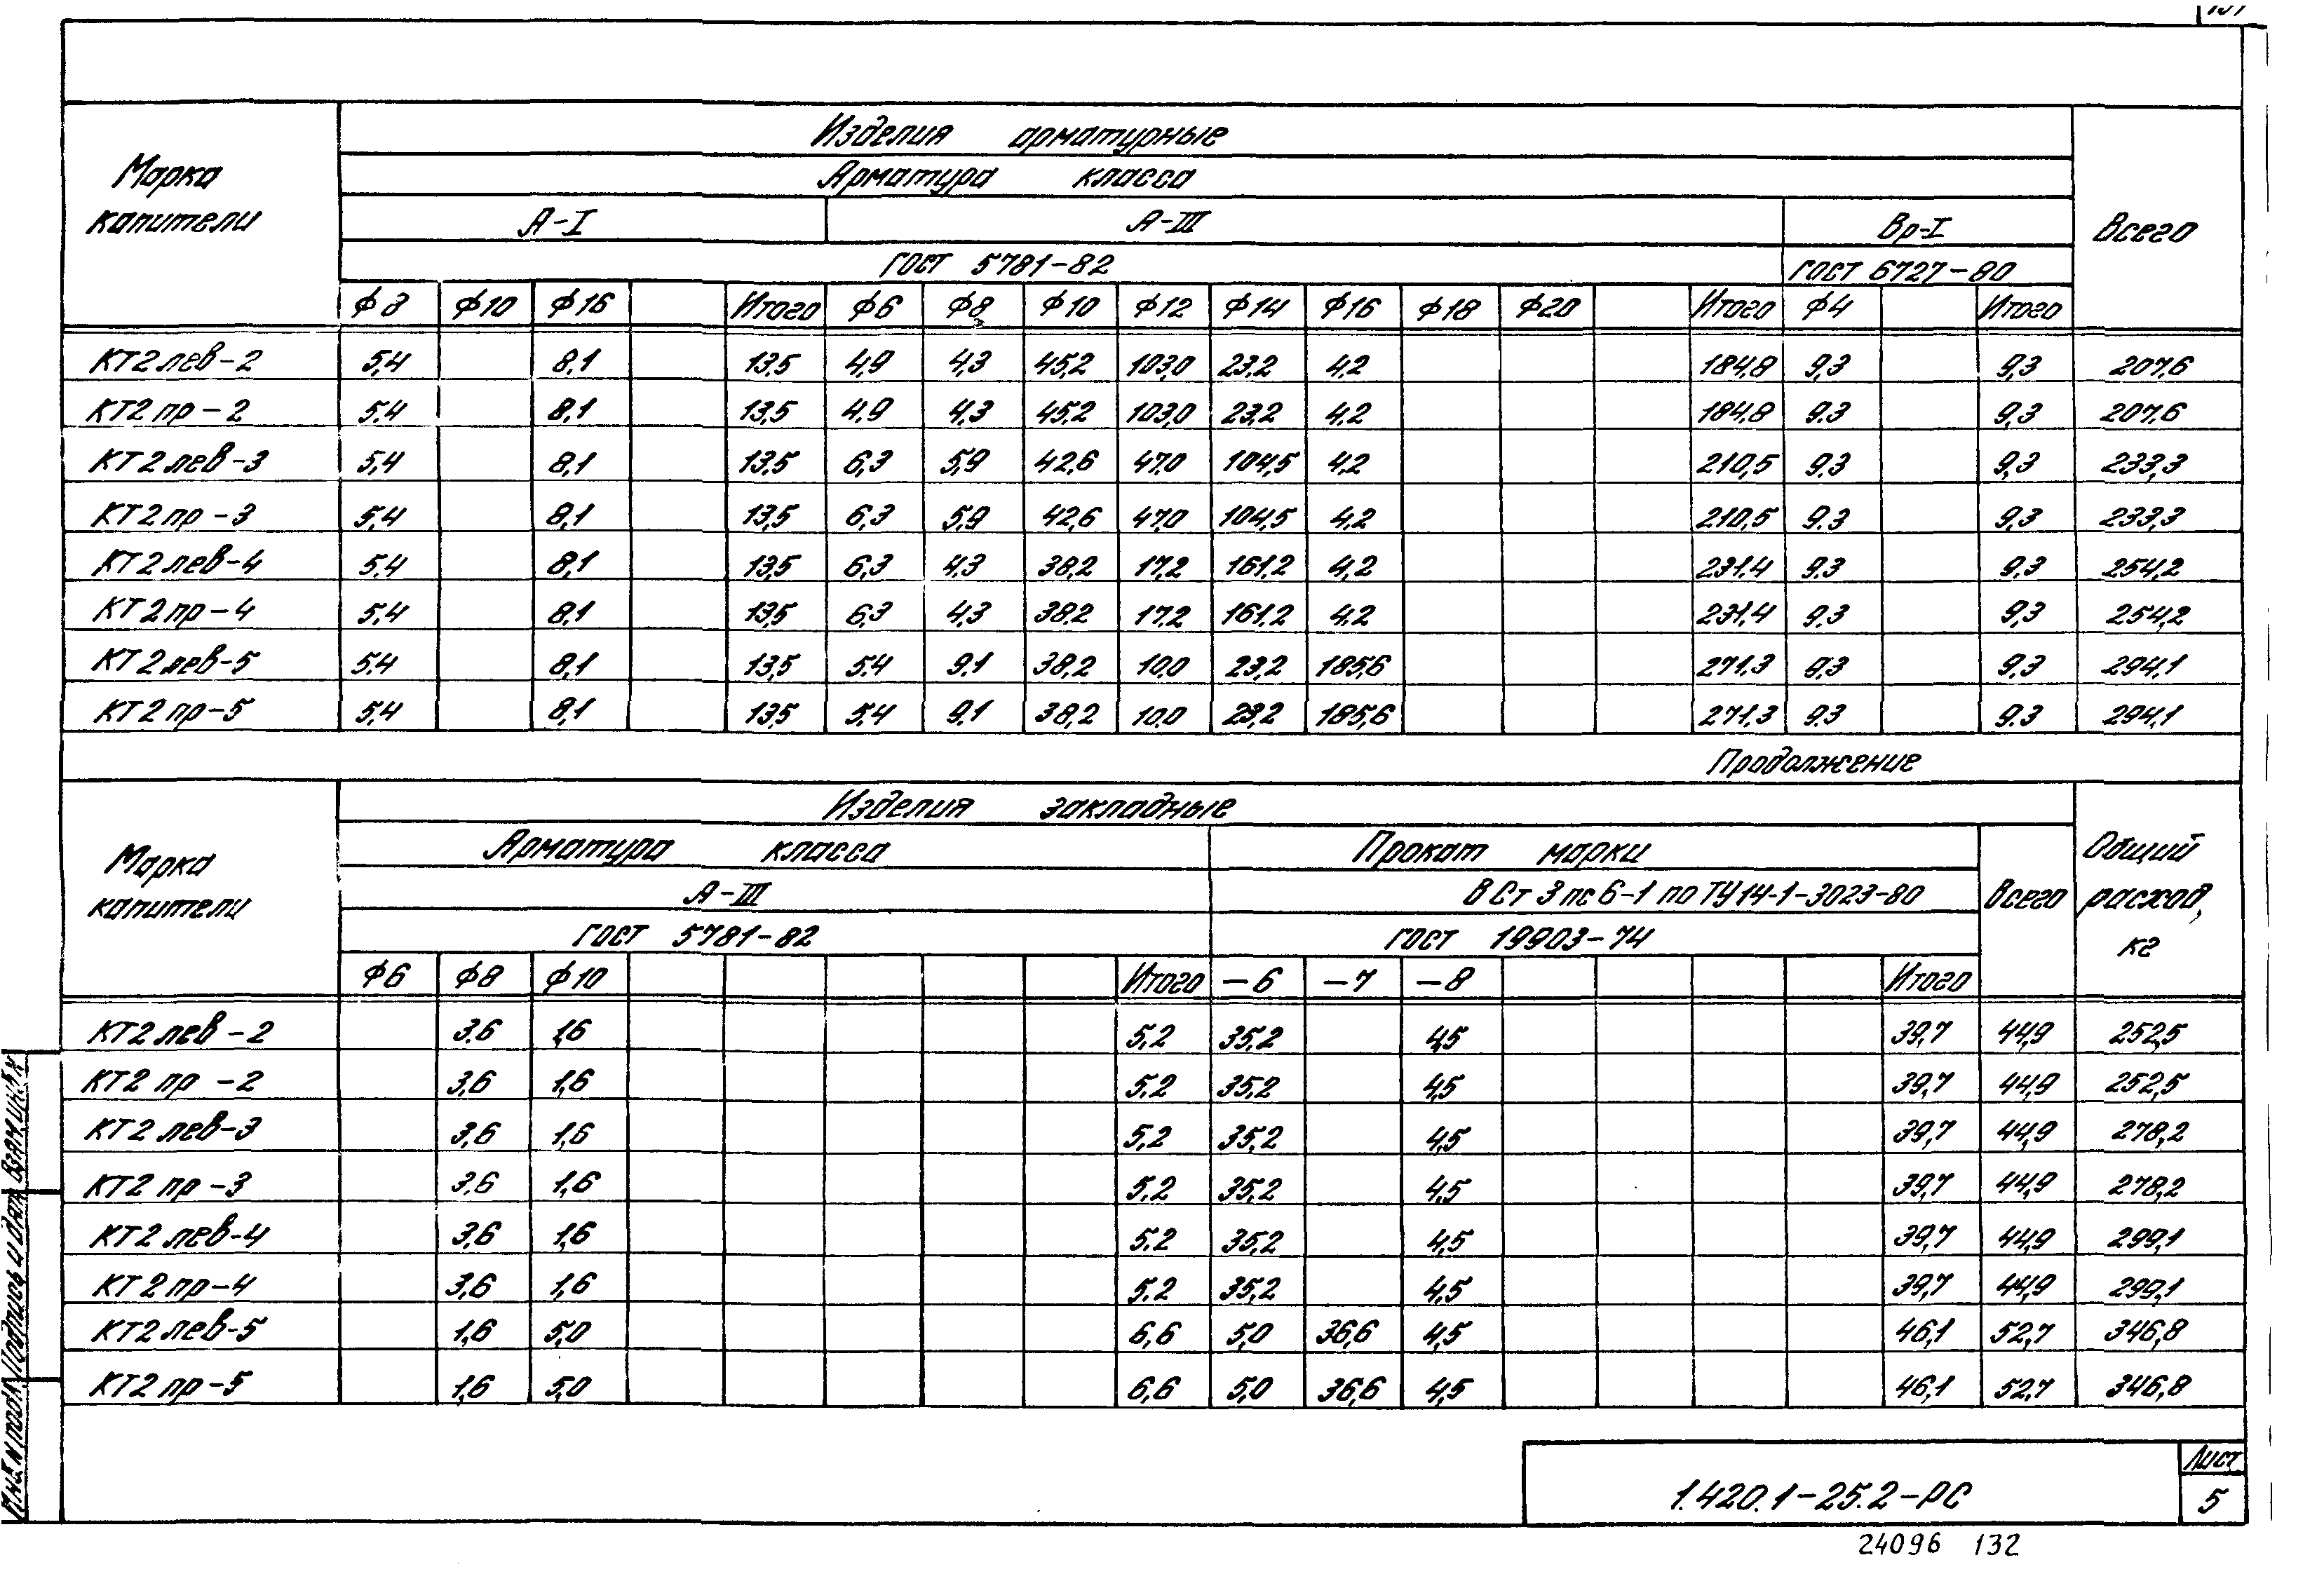 Изделия арматурные
Марка капители
Арматура класса
А-I А-III Вр-I Всего
ГОСТ 5781-82 ГОСТ 6727-80
Ф8 Ф10 Ф16 Итого Ф6 Ф8 Ф10 Ф12 Ф14 Ф16 Ф18 Ф20 Итого Ф4 Итого
КТ2лев-2 5,4 8,1 13,5 4,9 4,3 45,2 103,0 23,2 4,2 184,8 9,3 9,3 207,6
КТ2пр-2 5,4 8,1 13,5 4,9 4,3 45,2 103,0 23,2 4,2 184,8 9,3 9,3 207,6
КТ2лев-3 5,4 8,1 13,5 6,3 5,9 42,6 47,0 104,5 4,2 210,5 9,3 9,3 233,3
КТ2пр-3 5,4 8,1 13,5 6,3 5,9 42,6 47,0 104,5 4,2 210,5 9,3 9,3 233,3
КТ2лев-4 5,4 8,1 13,5 6,3 4,3 38,2 17,2 161,2 4,2 231,4 9,3 9,3 254,2
КТ2пр-4 5,4 8,1 13,5 6,3 4,3 38,2 17,2 161,2 4,2 231,4 9,3 9,3 254,2
КТ2лев-5 5,4 8,1 13,5 5,4 9,1 38,2 10,0 23,2 185,6 271,3 9,3 9,3 294,1
КТ2пр-5 5,4 8,1 13,5 5,4 9,1 38,2 10,0 23,2 185,6 271,3 9,3 9,3 294,1
Продолжение
Изделия закладные
Марка капители
Арматура класса Прокат марки Общий
А-III ВСт3пс6-1 по ТУ14-1-3023-80 Всего расход,
ГОСТ 5781-82 ГОСТ 19903-74 кг
Ф6 Ф8 Ф10 Итого -6 -7 -8 Итого
КТ2лев-2 3,6 1,6 5,2 35,2 4,5 39,7 44,9 252,5
КТ2пр-2 3,6 1,6 5,2 35,2 4,5 39,7 44,9 252,5
КТ2лев-3 3,6 1,6 5,2 35,2 4,5 39,7 44,9 278,2
КТ2пр-3 3,6 1,6 5,2 35,2 4,5 39,7 44,9 278,2
КТ2лев-4 3,6 1,6 5,2 35,2 4,5 39,7 44,9 299,1
КТ2пр-4 3,6 1,6 5,2 35,2 4,5 39,7 44,9 299,1
КТ2лев-5 1,6 5,0 6,6 5,0 36,6 4,5 46,1 52,7 346,8
КТ2пр-5 1,6 5,0 6,6 5,0 36,6 4,5 46,1 52,7 346,8
Взам.инв.№
Подпись и дата
Инв.№ подл.
1.420.1-25.2-РС
Лист
5
24096 132